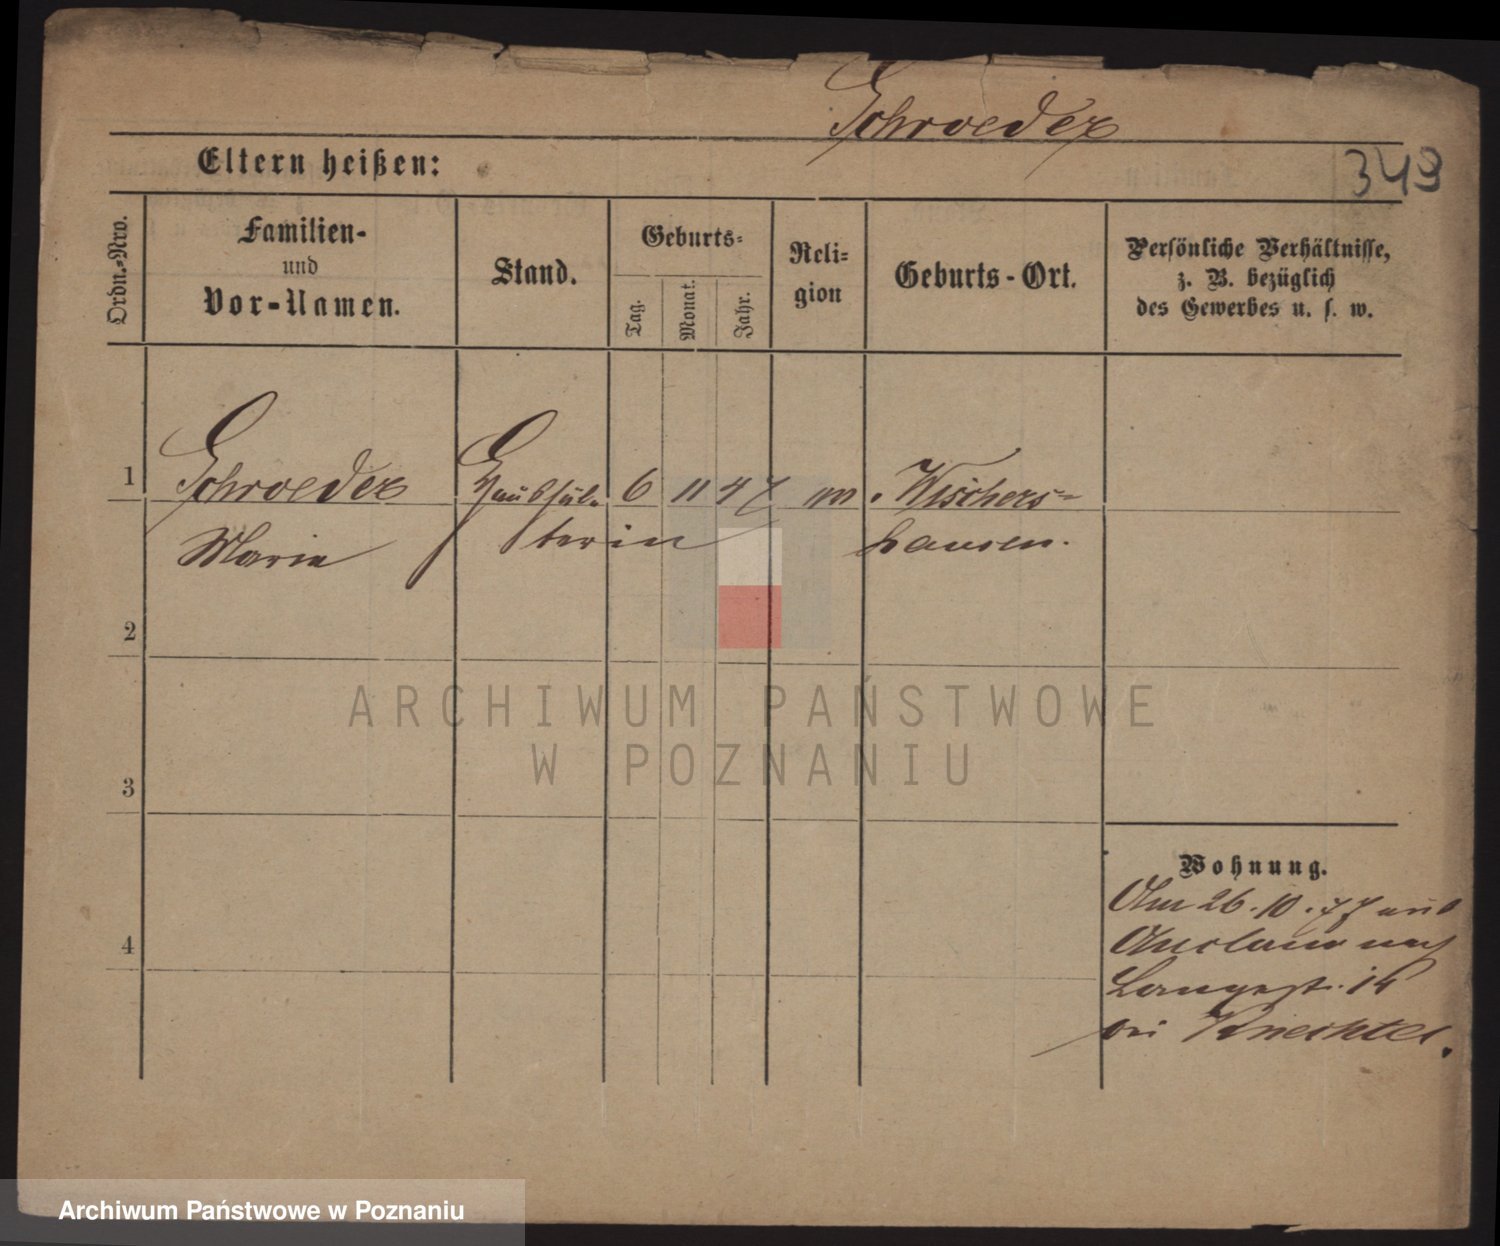 Schroeder
Eltern heißen:
349
Ordn.=Nro.
Familien-
und
Vor-Namen.
Stand.
Geburts=
Tag.
Monat.
Jahr.
Reli=
gion
Geburts-Ort.
Persönliche Verhältnisse,
z. B. bezüglich
des Gewerbes u. s. w.
1
Schroeder
Marie
6 11 47
Wischers=
hausen.
2
3
4
Wohnung.
Am 26.10.77 aus
nach
Langestr.
bei
ARCHIWUM PAŃSTWOWE
W POZNANIU
Archiwum Państwowe w Poznaniu